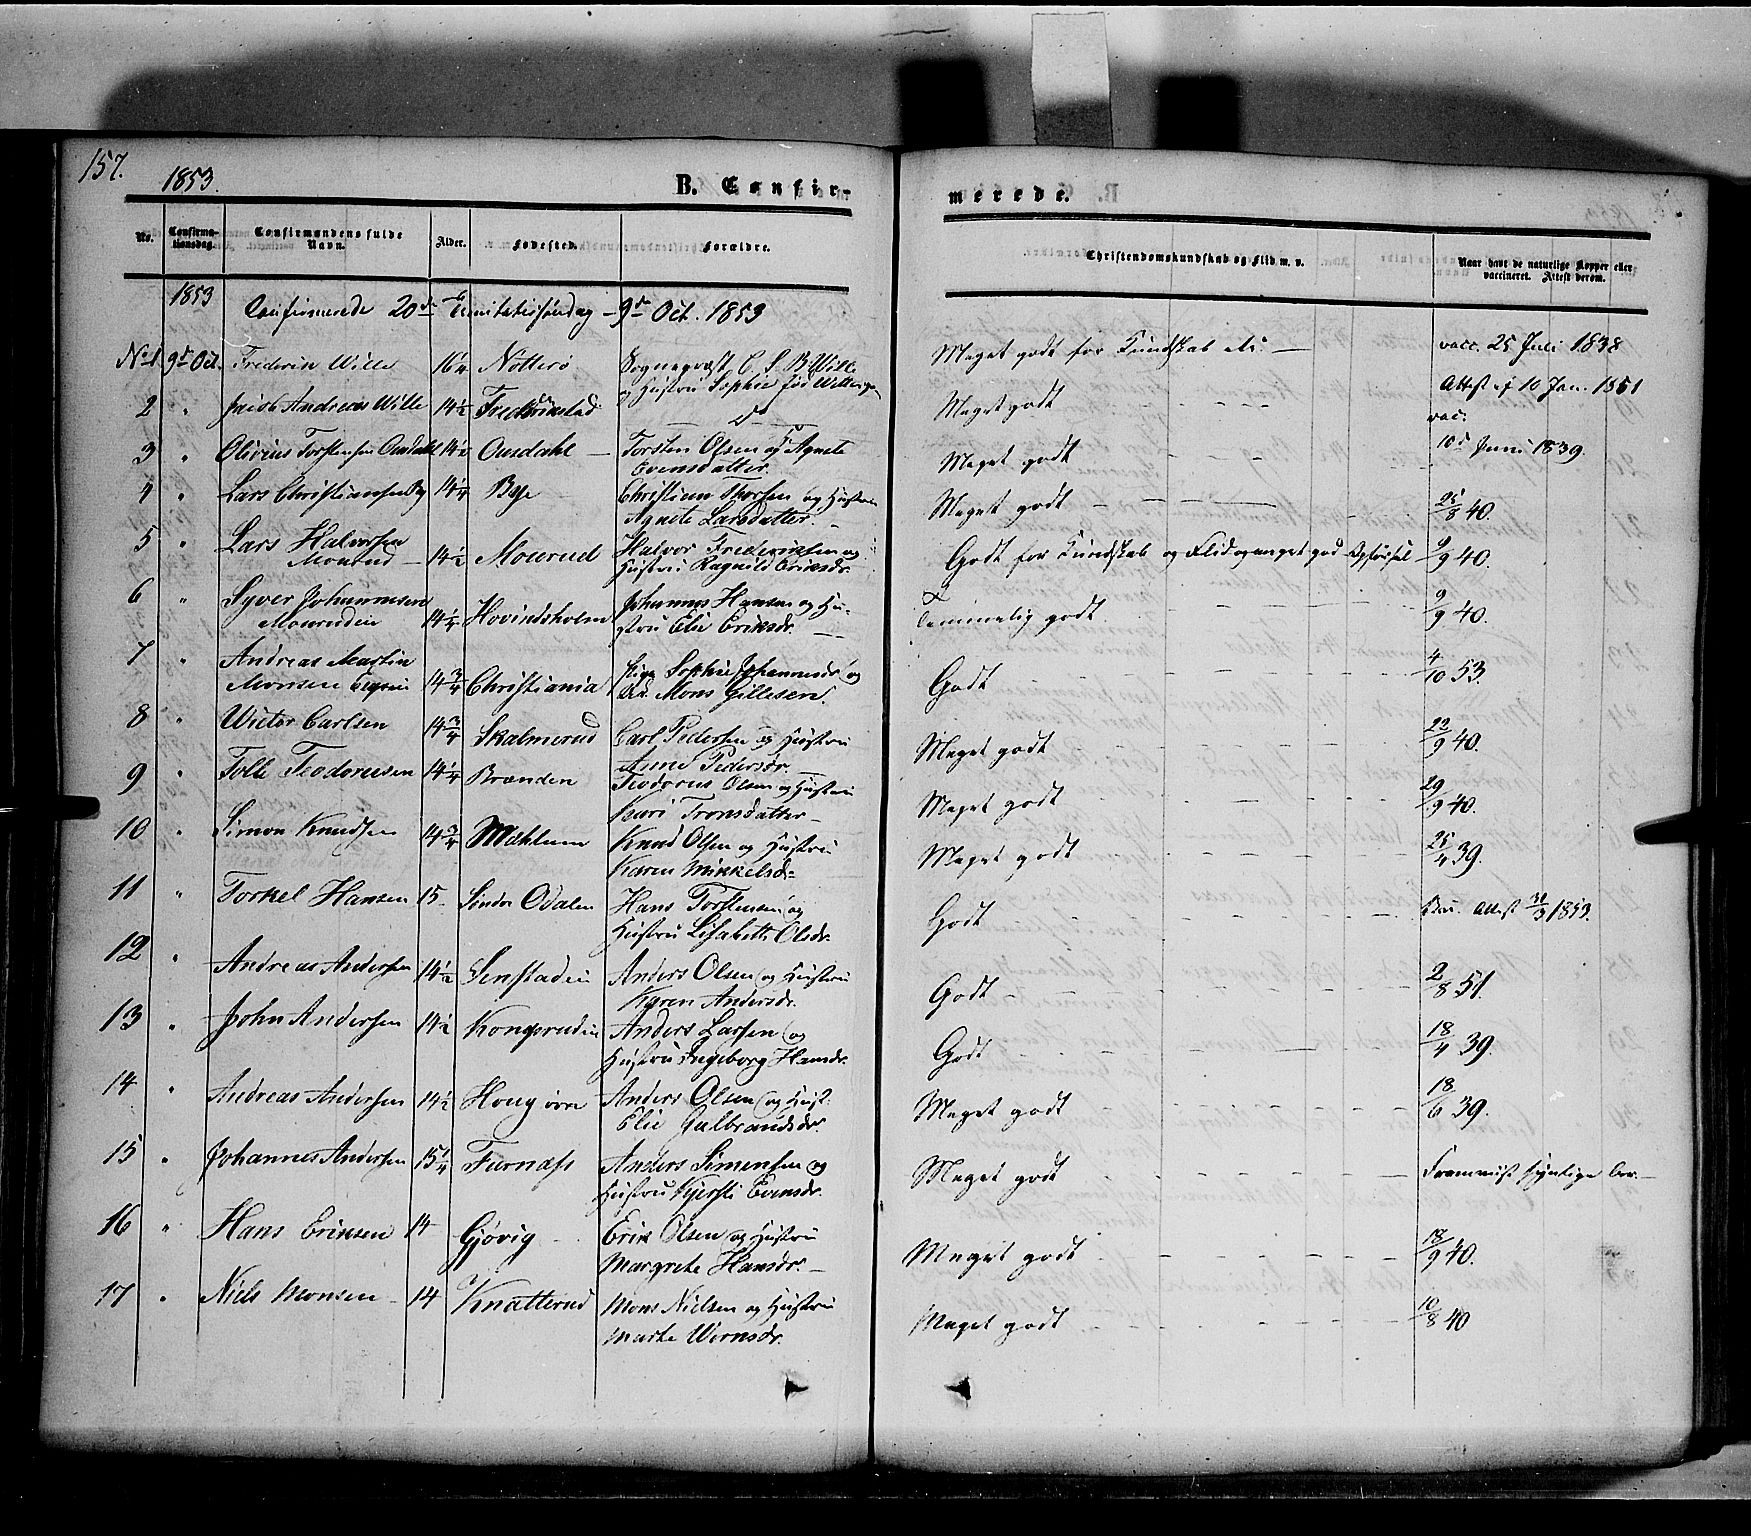 157.
1853.
B. Confir-
merede.
No.
Confirma-
tionsdag.
Confirmandens fulde
Navn.
Alder.
Fødested.
Forældre.
Christendomskundskab og Flid m. v.
Naar havt de naturlige Kopper eller
vaccineret. Attest derom.
1853 Confirmerede 20de Trinitatissøndag - 9de Oct. 1853
No 1. 9d Oct. Frederik Wille 16 1/4 Nøtterø Sognepræst C. S. B. Wille
og Hustru Sophie fød
Meget godt for Kundskab etc. — vacc. 25 Juli 1838
2 " Jacob Andreas Wille 14 1/2 Frederikstad do
Meget godt Attest af 10 Jan. 1851
vac.
3 " Olivius Torstensen Ousdahl 14 1/2 Ousdahl — Torsten Olsen og Agnete
Evensdatter.
Meget godt 10d Juni 1839.
4 " Lars Christiansen Bye 14 1/4 Bye Christian Thorsen og Hustru
Agnete Larsdatter.
Meget godt 25/8 40.
5 " Lars Halvorsen
Mourud — 14 1/2 Mourud Halvor Frederiksen og
Hustru Ragnild Eriksdr.
Godt for Kundskab og Flid og meget god Opførsel 9/9 40.
6 " Syver Johannesen
Mourudeie 14 1/4 Hovindsholm Johannes Hansen og Hu-
stru Elie Eriksdr. —
Temmelig godt 9/9 40.
7 " Andreas Martin
Monsen 14 3/4 Christiania Pige Sophie Johannesdr og
Mons Gullesen.
Godt 4/10 53.
8 " Victor Carlsen 14 3/4 Skalmerud Carl Pedersen og Hustru
Anne Pedersdr.
Meget godt 23/9 40.
9 " Tolle Teodorusen 14 1/4 Brænden Teodorus Olsen og Hustru
Kari Tronsdatter —
Meget godt 29/9 40.
10 " Simon Knudsen 14 3/4 Mæhlum Knud Olsen og Hustru
Karen Mikkelsdr
Meget godt 25/4 39.
11 " Torkel Hansen 15 Søndre Odalen Hans Torstensen og
Hustru Lisabeth Olsdr.
Godt Attest 31/3 1853.
12 " Andreas Andersen 14 1/2 Anders Olsen og Hustru
Karen Andersdr.
Godt 2/8 51.
13 " John Andersen 14 1/2 Kongsrudeie Anders Larsen og
Hustru Ingeborg Hansdr.
Godt 18/4 39.
14 " Andreas Andersen 14 1/2 Anders Olsen og Hust.
Elie Gulbrandsdr.
Meget godt 18/6 39.
15 " Johannes Andersen 15 1/4 Furnæss Anders Simensen og
Hustru Kjersti Evensdr.
Meget godt Fremviist synlige Ar. —
16 " Hans Eriksen 14 Gjøvig Erik Olsen og Hustru
Margrete Hansdr. —
Meget godt 18/9 40.
17 " Niels Monsen 14 Knatterud Mons Nielsen og Hustru
Marte
Meget godt 10/8 40